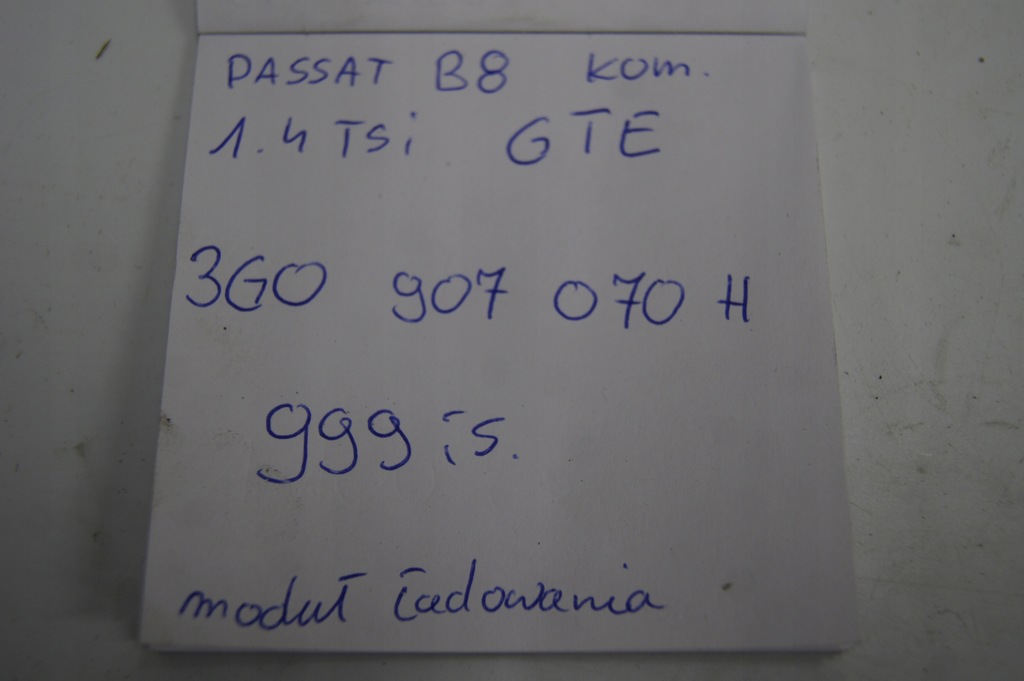 PASSAT B8 kom.
1.4 TSi GTE
3G0 907 070 H
999 is.
moduł ładowania